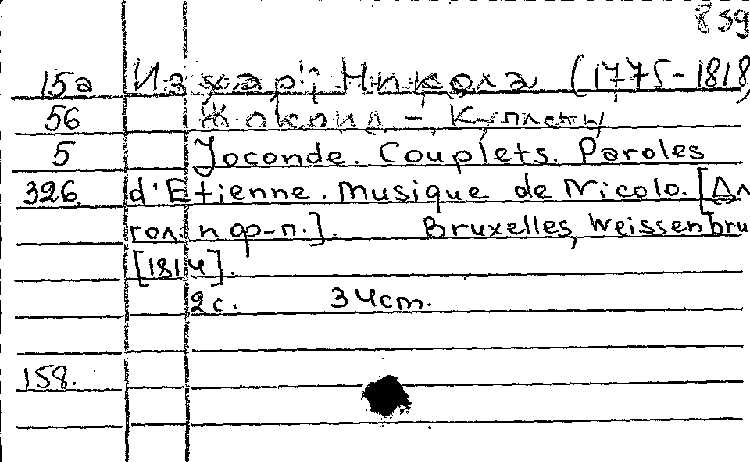 859
15а Изуар, Никола (1775-1818
56 Жоконд - Куплеты
5 Joconde. Couplets. Paroles
326 d'Etienne. Musique de Nicolo. [Дл
гол. и ф-п.]. Bruxelles, Weissenbru
[1814].
2с. 34cm.
158.